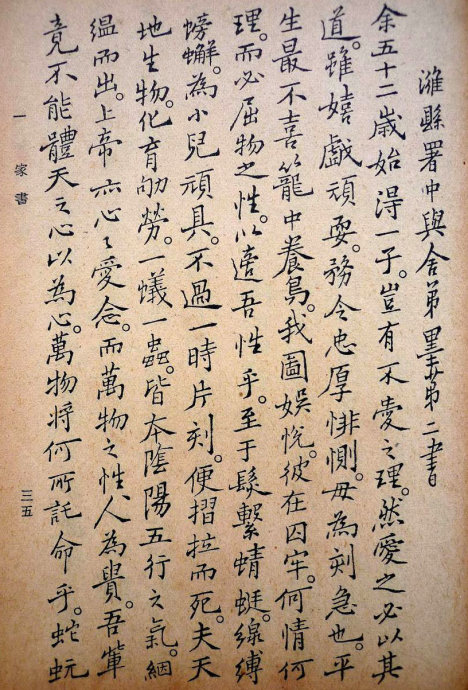 濰縣署中與舍弟墨第二書
余五十二歲始淂一子。豈有不愛之理。然愛之必以其
道。雖嬉戲頑耍。務令忠厚悱惻。毋為刻急也。平
生最不喜籠中養鳥。我圖娛悅。彼在囚牢。何情何
理。而必屈物之性。以適吾性乎。至于髮繫蜻蜓。線縛
螃蠏。為小兒頑具。不過一時片刻。便摺拉而死。夫天
地生物。化育劬勞。一蟻一蟲。皆本陰陽五行之氣。絪
縕而出。上帝亦心々愛念。而萬物之性。人為貴。吾輩
竟不能體天之心以為心。萬物將何所託命乎。蛇蚖
一 家書 三五